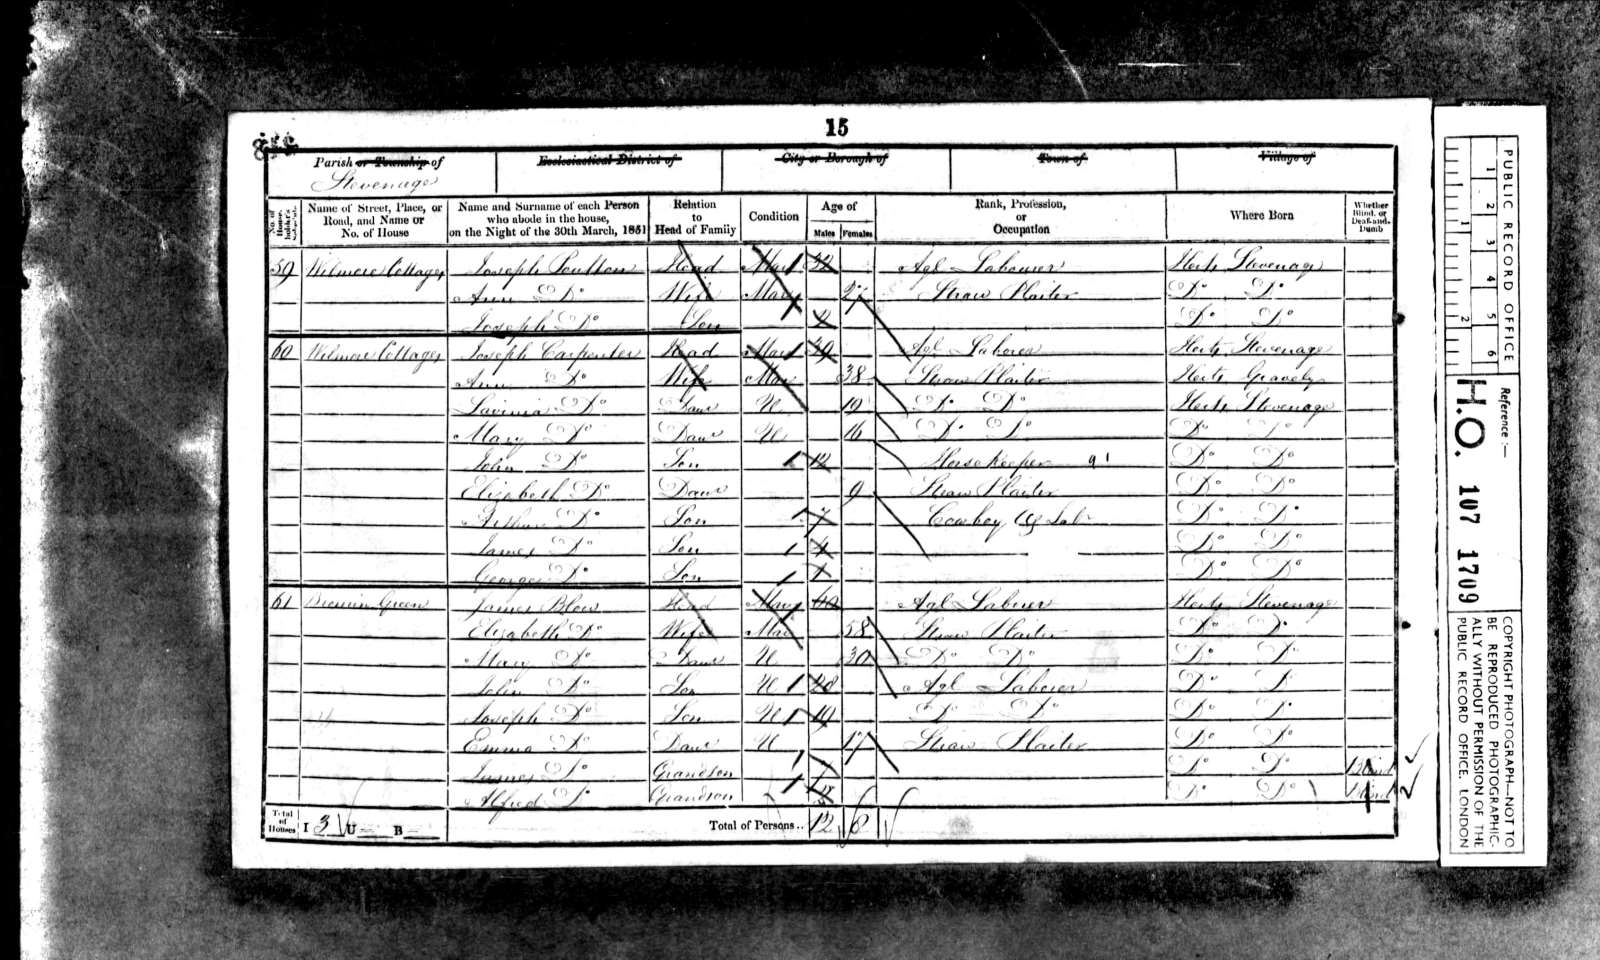 15
Parish or Township of Ecclesiastical District of City or Borough of Town of Village of
Stevenage
No. of House-holder's Schedule Name of Street, Place, or Road, and Name or No. of House Name and Surname of each Person who abode in the house, on the Night of the 30th March, 1851 Relation to Head of Family Condition Age of Males Females Rank, Profession, or Occupation Where Born Whether Blind, or Deaf-and-Dumb
59 Wilmore Cottages Joseph Poulton Head Mar 32 Agl Labourer Herts Stevenage
Ann Do Wife Mar 27 Straw Plaiter Do Do
Joseph Do Son 2 Do Do
60 Wilmore Cottages Joseph Carpenter Head Mar 39 Agl Laborer Herts Stevenage
Ann Do Wife Mar 38 Straw Plaiter Herts Gravely
Lavinia Do Daur U 19 Do Do Herts Stevenage
Mary Do Daur U 16 Do Do Do Do
John Do Son 12 Horsekeeper 91 Do Do
Elizabeth Do Daur 9 Straw Plaiter Do Do
Arthur Do Son 7 Cowboy Ag Lab Do Do
James Do Son 4 Do Do
George Do Son 1 Do Do
61 Green James Blow Head Mar 60 Agl Laborer Herts Stevenage
Elizabeth Do Wife Mar 58 Straw Plaiter Do Do
Mary Do Daur U 30 Do Do Do Do
John Do Son U 28 Agl Laborer Do Do
Joseph Do Son U 19 Do Do Do Do
Emma Do Daur U 17 Straw Plaiter Do Do
James Do Grandson 7 Do Do Blind
Alfred Do Grandson Do Do Blind
Total of Houses I 3 U B Total of Persons.. 12 8
PUBLIC RECORD OFFICE
1 2 3 4 5 6
1 2
Reference :—
H.O. 107 1709
COPYRIGHT PHOTOGRAPH—NOT TO
BE REPRODUCED PHOTOGRAPHIC-
ALLY WITHOUT PERMISSION OF THE
PUBLIC RECORD OFFICE, LONDON